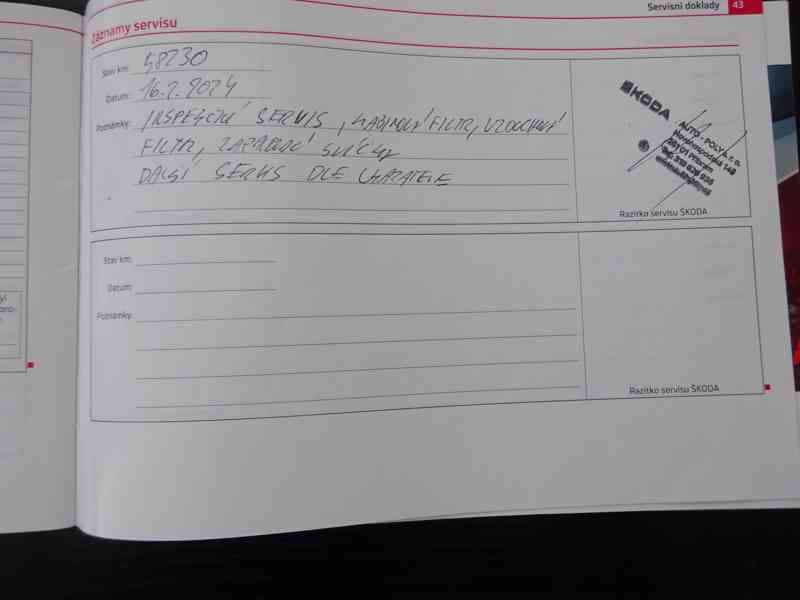 Servisní doklady 43
Záznamy servisu
Stav km: 58230
Datum: 16.2.2024
Poznámky: INSPEKČNÍ SERVIS, KABINOVÝ FILTR, VZDUCHOVÝ
FILTR, ZAPALOVACÍ SVÍČKY
DALŠÍ SERVIS DLE UKAZATELE
ŠKODA
AUTO - POLYA, s. r. o.
261 01 Příbram
Razítko servisu ŠKODA
Stav km:
Datum:
Poznámky:
Razítko servisu ŠKODA